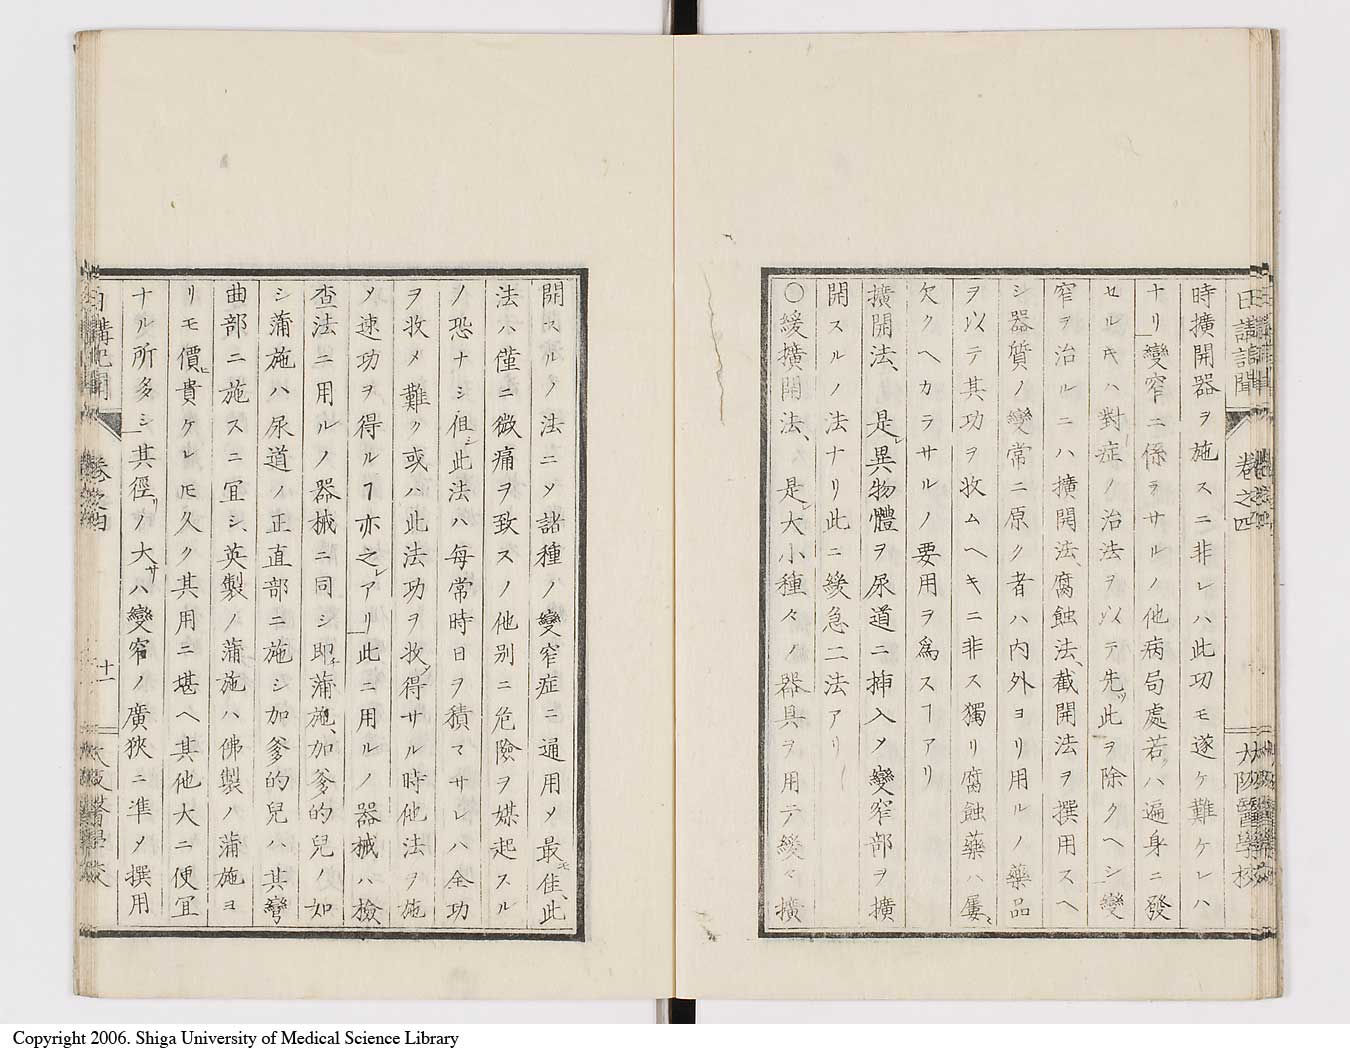 日講記聞 卷之四 大阪醫學校
時擴開器ヲ施スニ非レハ此功モ遂ケ難ケレハ
ナリ變窄ニ係ラサルノ他病局處若クハ遍身ニ發
セルキハ對症ノ治法ヲ以テ先ツ此ヲ除クヘシ變
窄ヲ治ルニハ擴開法、腐蝕法、截開法ヲ撰用スヘ
シ器質ノ變常ニ原ク者ハ内外ヨリ用ルノ藥品
ヲ以テ其功ヲ收ムヘキニ非ス獨リ腐蝕藥ハ屢〻
欠クヘカラサルノ要用ヲ爲スヿアリ
擴開法、 是レ異物體ヲ尿道ニ揷入ノ變窄部ヲ擴
開スルノ法ナリ此ニ緩急二法アリ
○緩擴開法、 是レ大小種々ノ器具ヲ用テ緩々擴
開スルノ法ニノ諸種ノ變窄症ニ通用メ最モ佳、此
法ハ僅ニ微痛ヲ致スノ他別ニ危險ヲ媒起スル
ノ恐ナシ徂シ此法ハ每常時日ヲ積マサレハ全功
ヲ收メ難ク或ハ此法功ヲ收メ得サル時他法ヲ施
メ速功ヲ得ルヿ亦之レアリ此ニ用ルノ器械ハ檢
查法ニ用ルノ器械ニ同シ即チ蒲施、加爹的兒ノ如
シ蒲施ハ尿道ノ正直部ニ施シ加爹的兒ハ其彎
曲部ニ施スニ宜シ、英製ノ蒲施ハ佛製ノ蒲施ヨ
リモ價ヒ貴ケレ𪜈久ク其用ニ堪ヘ其他大ニ便宜
ナル所多シ其徑リノ大サハ變窄ノ廣狹ニ準メ撰用
日講記聞 卷之四 十一 大阪醫學校
Copyright 2006. Shiga University of Medical Science Library